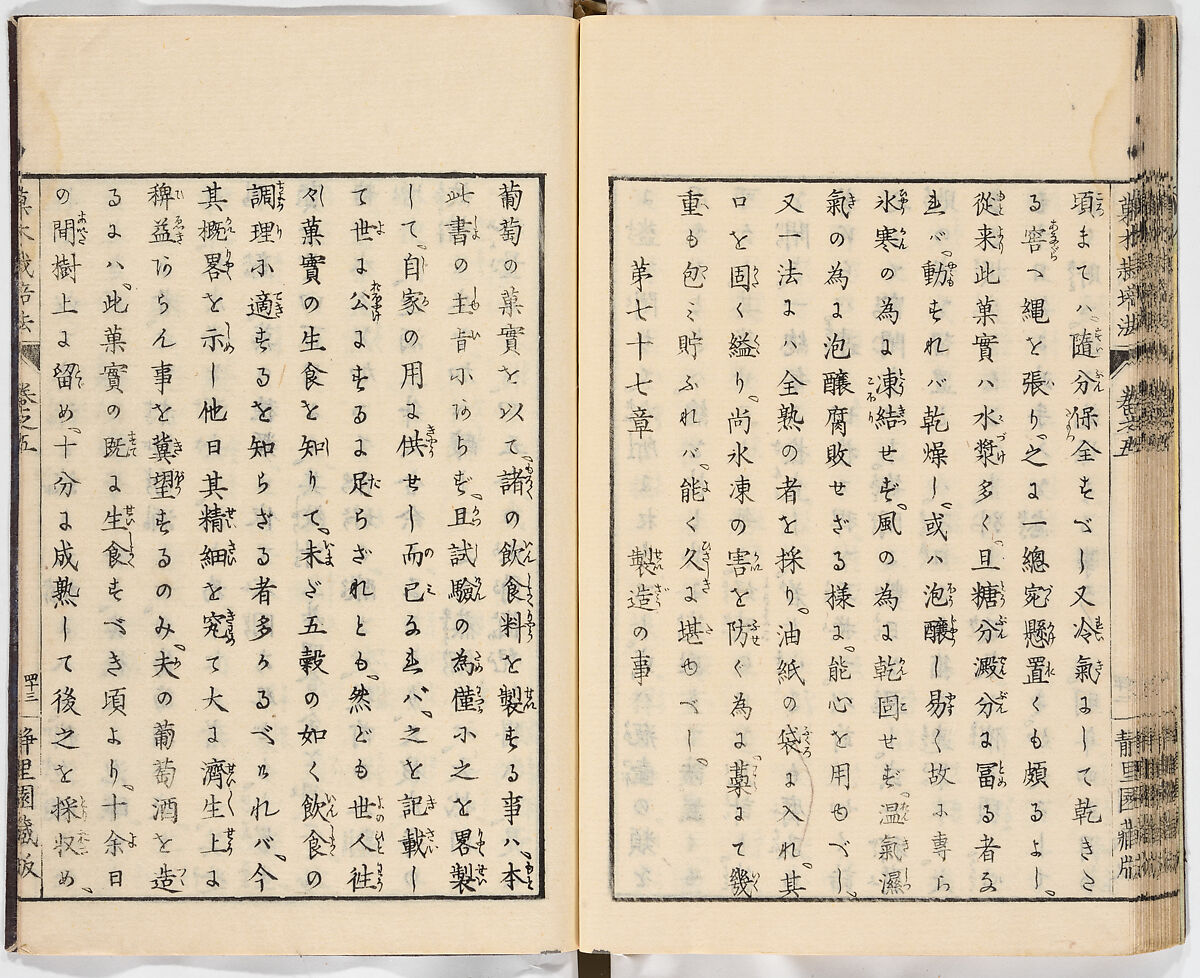 菓木栽培法　卷之五　静里園蔵版
頃まてハ、随分保全すべし又冷氣にして乾きた
る窖へ縄を張り、之に一總宛懸置くも頗るよし、
從来此菓實ハ水漿多く、且糖分澱分に冨る者な
れバ、動すれバ乾燥し、或ハ泡醸し易く故に専ら
氷寒の為に凍結せず、風の為に乾固せず、温氣濕
氣の為に泡醸腐敗せざる様に、能心を用ゆべし、
又一法にハ全熟の者を採り、油紙の袋に入れ、其
口を固く縊り、尚氷凍の害を防ぐ為に、藁にて幾
重も包ミ貯ふれバ、能く久に堪ゆべし、
第七十七章　製造の事
葡萄の菓實を以て、諸の飲食料を製する事ハ、本
此書の主旨にあらず、且試驗の為僅に之を畧製
して、自家の用に供せし而已なれバ、之を記載し
て世に公にするに足らざれとも、然ども世人徃
々菓實の生食を知りて、未だ五穀の如く飲食の
調理に適するを知らざる者多かるべけれバ、今
其概畧を示し他日其精細を究て大に濟生上に
稗益あらん事を冀望するのみ、夫の葡萄酒を造
るにハ、此菓實の既に生食すべき頃より、十余日
の間樹上に留め、十分に成熟して後之を採収め、
菓木栽培法　卷之五　四十三　静里園蔵版